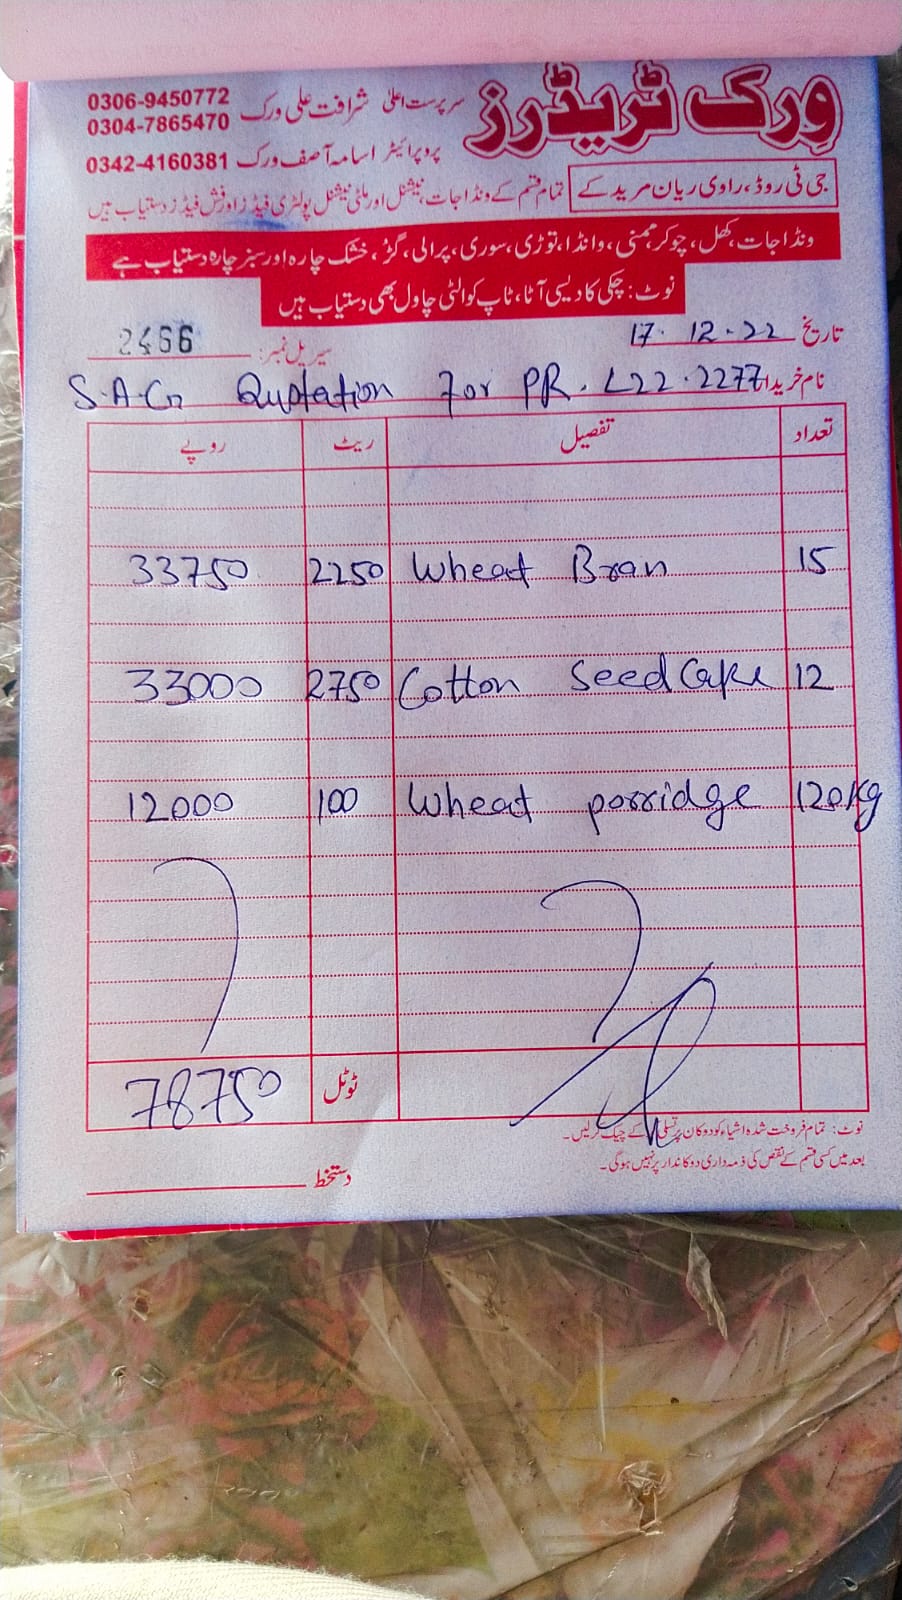 ورک ٹریڈرز
سرپرست اعلیٰ شرافت علی ورک 0306-9450772
0304-7865470
پروپرائیٹر اسامہ آصف ورک 0342-4160381
جی ٹی روڈ، راوی ریان مریدکے
تمام قسم کے ونڈا جات، نیشنل اور ملٹی نیشنل پولٹری فیڈز اور فش فیڈز دستیاب ہیں
ونڈا جات، کھل، چوکر، ممنی، وانڈا، توڑی، سوری، پرالی، گڑ، خشک چارہ اور سبز چارہ دستیاب ہے
نوٹ: چکی کا دیسی آٹا، ٹاپ کوالٹی چاول بھی دستیاب ہیں
تاریخ 17. 12-22
سیریل نمبر: 2466
نام خریدار
S.A.G Quotation for PR. L22.2277
تعداد تفصیل ریٹ روپے
15 Wheat Bran 2250 33750
12 Cotton Seed Cake 2750 33000
120kg Wheat porridge 100 12000
ٹوٹل 78750
نوٹ: تمام فروخت شدہ اشیاء کو دوکان پر تسلی کے چیک کرلیں۔
بعد میں کسی قسم کے نقص کی ذمہ داری دوکاندار پر نہیں ہوگی۔
دستخط